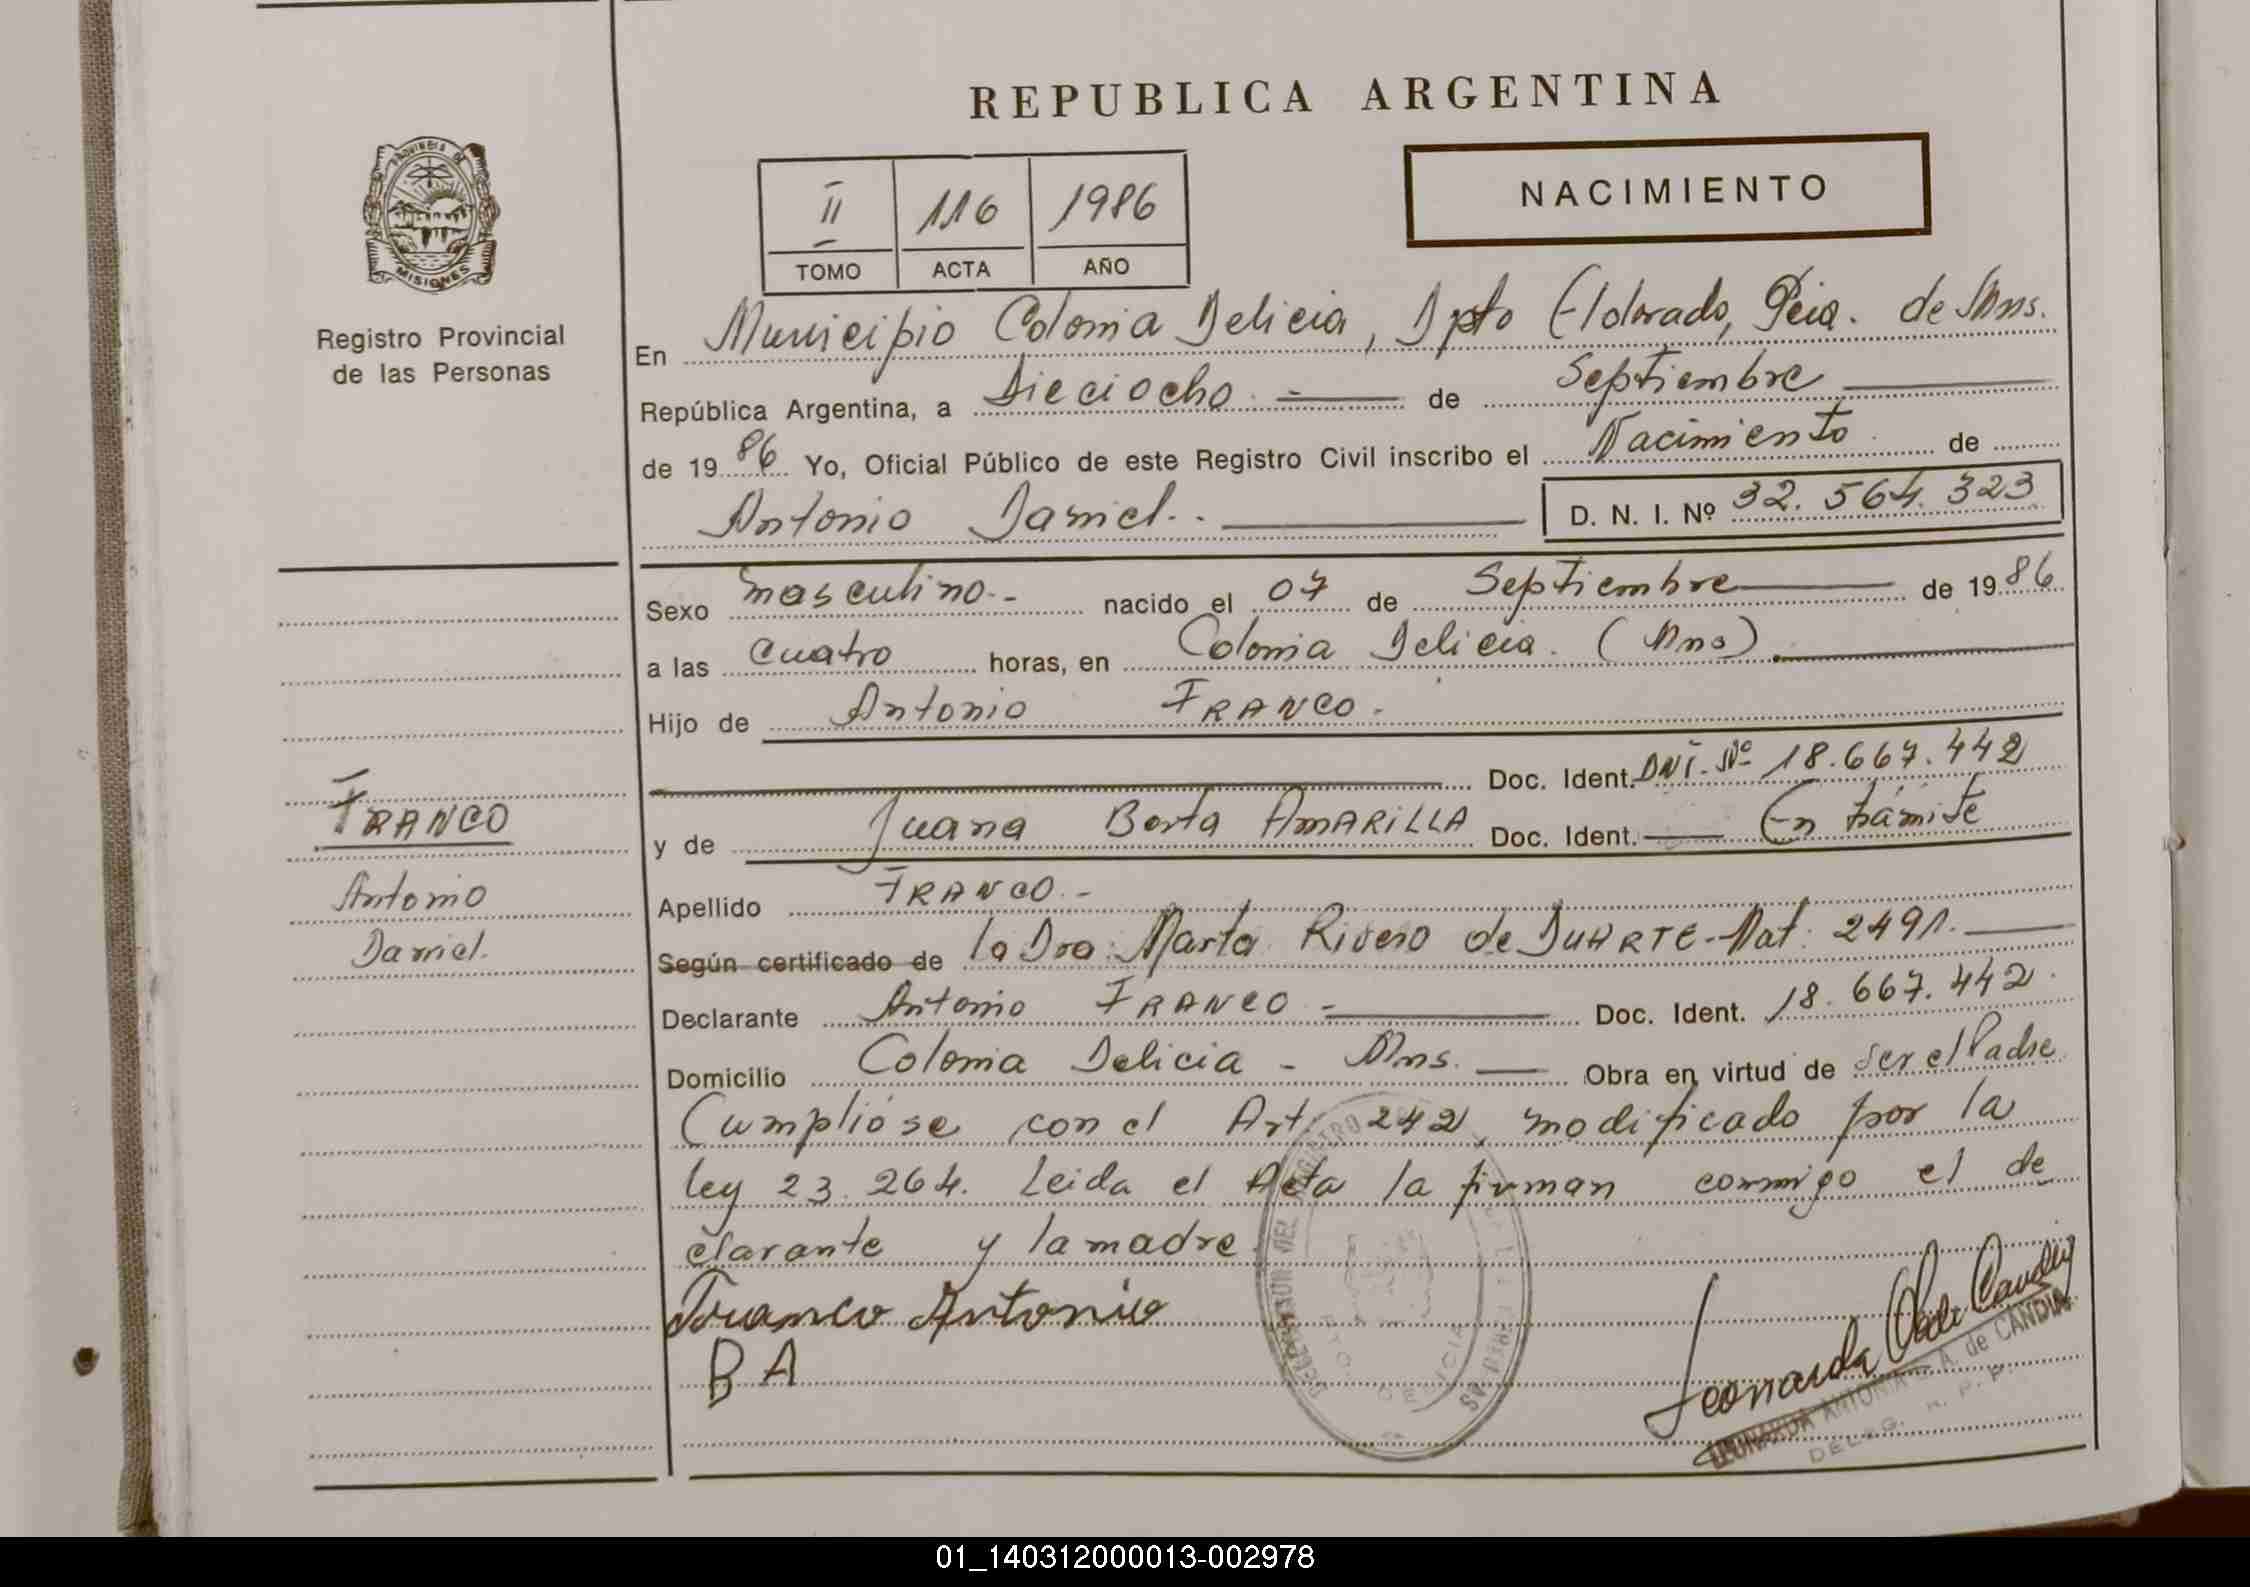 REPUBLICA ARGENTINA
NACIMIENTO
II 116 1986
TOMO ACTA AÑO
PROVINCIA DE
MISIONES
Registro Provincial
de las Personas
En Municipio Colonia Delicia, Dpto Eldorado, Pcia. de Mns.
República Argentina, a Dieciocho. — de Septiembre —
de 19 86 Yo, Oficial Público de este Registro Civil inscribo el Nacimiento de
Antonio Daniel. — D. N. I. Nº 32.564.323
Sexo masculino.- nacido el 07 de Septiembre — de 19 86
a las cuatro horas, en Colonia Delicia. (Mns). —
Hijo de Antonio FRANCO.
Doc. Ident. DNI. Nº 18.667.442
y de Juana Berta AMARILLA Doc. Ident. — En trámite
Apellido FRANCO.-
Según certificado de la Dra. Marta Rivero de DUARTE - Mat. 2491. —
Declarante Antonio FRANCO — Doc. Ident. 18.667.442.
Domicilio Colonia Delicia - Mns. — Obra en virtud de Ser el Padre
Cumplióse con el Art. 242, modificado por la
ley 23.264. Leida el Acta la firman conmigo el de
clarante y la madre
Franco Antonio
B A
FRANCO
Antonio
Daniel.
LEONARDA ANTONIA A. de CANDIA
DELEG. R. P. P.
01_140312000013-002978